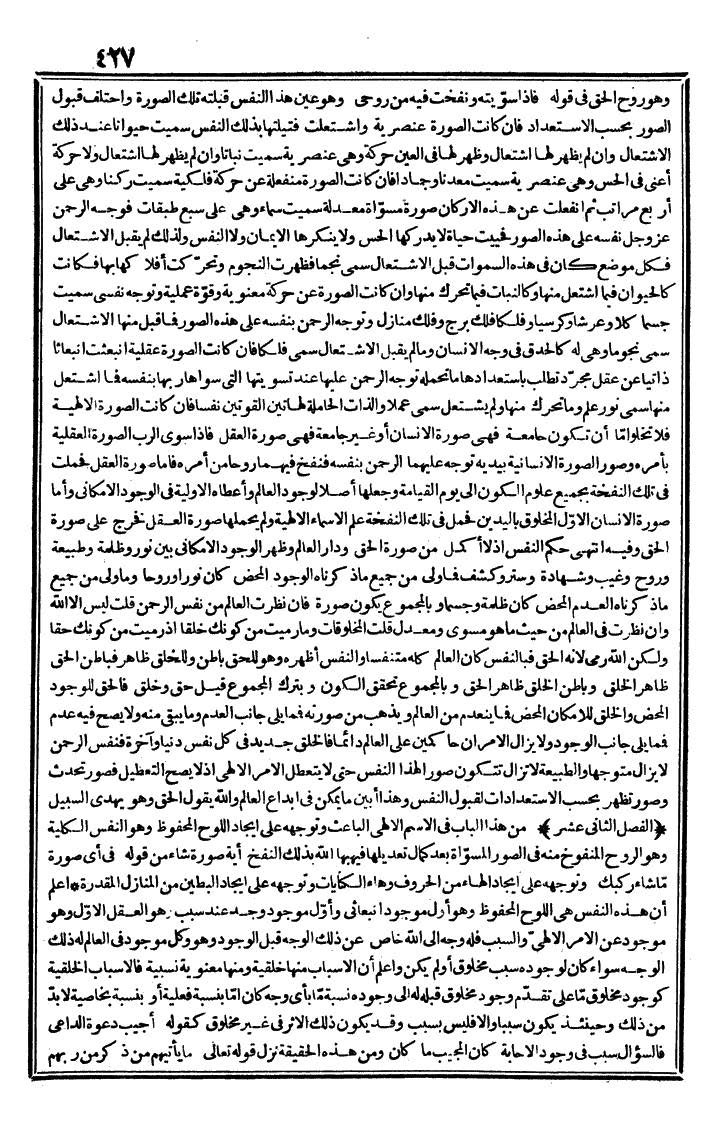 ٤٢٧
وهو روح الحق فى قوله فاذا سوّيته ونفخت فيه من روحى وهو عين هذا النفس قبلته تلك الصورة واختلف قبول
الصور بحسب الاستعداد فان كانت الصورة عنصرية واشتعلت فتيلتها بذلك النفس سميت حيوانا عند ذلك
الاشتعال وان لم يظهر لها اشتعال وظهر لها فى العين حركة وهى عنصرية سميت نباتا وان لم يظهر لها اشتعال ولا حركة
أعنى فى الحس وهى عنصرية سميت معدنا وجمادا فان كانت الصورة منفعلة عن حركة فلكية سميت ركنا وهى على
أربع مراتب ثم انفعلت عن هذه الاركان صورة مسوّاة معدلة سميت سماء وهى على سبع طبقات فوجه الرحمن
عز وجل نفسه على هذه الصور فحييت حياة لا يدركها الحس ولا ينكرها الايمان ولا النفس ولذلك لم يقبل الاشتعال
فكل موضع كان فى هذه السموات قبل الاشتعال سمى نجما فظهرت النجوم وتحرّكت أفلاكها بها فكانت
كالحيوان فيما اشتعل منها وكالنبات فيما تحرك منها وان كانت الصورة عن حركة معنوية وقوّة عملية وتوجه نفسى سميت
جسما كلا وعرشا وكرسيا وفلكا فلك برج وفلك منازل وتوجه الرحمن بنفسه على هذه الصور فما قبل منها الاشتعال
سمى نجوما وهى له كالحدق فى وجه الانسان وما لم يقبل الاشتعال سمى فلكا فان كانت الصورة عقلية انبعثت انبعاثا
ذاتيا عن عقل مجرّد تطلب باستعدادها ما تحمله توجه الرحمن عليها عند تسويتها التى سواها ربها بنفسه فما اشتعل
منها سمى نور علم وما تحرك منها ولم يشتعل سمى عملا والذات الحاملة لهاتين القوتين نفسا فان كانت الصورة الالهية
فلا تخلو امّا أن تكون جامعة فهى صورة الانسان أو غير جامعة فهى صورة العقل فاذا سوى الرب الصورة العقلية
بأمره وصور الصورة الانسانية بيديه توجه عليهما الرحمن بنفسه فنفخ فيهما روحا من أمره فاما صورة العقل فحملت
فى تلك النفخة بجميع علوم الكون الى يوم القيامة وجعلها أصلا لوجود العالم وأعطاه الاولية فى الوجود الامكانى وأما
صورة الانسان الاوّل المخلوق باليدين فحمل فى تلك النفخة علم الاسماء الالهية ولم يحملها صورة العقل فخرج على صورة
الحق وفيه انتهى حكم النفس اذ لا أكمل من صورة الحق ودار العالم وظهر الوجود الامكانى بين نور وظلمة وطبيعة
وروح وغيب وشهادة وستر وكشف فما ولى من جميع ماذكرناه الوجود المحض كان نورا وروحا وما ولى من جميع
ماذكرناه العدم المحض كان ظلمة وجسما وبالمجموع يكون صورة فان نظرت العالم من نفس الرحمن قلت ليس الا الله
وان نظرت فى العالم من حيث ماهو مسوى ومعدل قلت المخلوقات ومارميت من كونك خلقا اذرميت من كونك حقا
ولكن الله رمى لانه الحق فبالنفس كان العالم كله متنفسا والنفس أظهره وهو للحق باطن وللخلق ظاهر فباطن الحق
ظاهر الخلق وباطن الخلق ظاهر الحق وبالمجموع تحقق الكون وبترك المجموع قيل حق وخلق فالحق للوجود
المحض والخلق للامكان المحض فما ينعدم من العالم ويذهب من صورته فمما يلى جانب العدم وما يبقى منه ولا يصح فيه عدم
فمما يلى جانب الوجود ولا يزال الامران حاكمين على العالم دائما فالخلق جديد فى كل نفس دنيا وآخرة فنفس الرحمن
لا يزال متوجها والطبيعة لا تزال تتكون صورا لهذا النفس حتى لا يتعطل الامر الالهى اذ لا يصح التعطيل فصور تحدث
وصور تظهر بحسب الاستعدادات لقبول النفس وهذا أبين ما يمكن فى ابداع العالم والله يقول الحق وهو يهدى السبيل
﴿الفصل الثانى عشر﴾ من هذا الباب فى الاسم الالهى الباعث وتوجهه على ايجاد اللوح المحفوظ وهو النفس الكلية
وهو الروح المنفوخ منه فى الصور المسوّاة بعد كمال تعديلها فيهبها الله بذلك النفخ أية صورة شاء من قوله فى أى صورة
ماشاء ركبك وتوجهه على ايجاد الهاء من الحروف وهاء الكنايات وتوجهه على ايجاد البطين من المنازل المقدرة * اعلم
أن هذه النفس هى اللوح المحفوظ وهو أول موجود انبعاثى وأوّل موجود وجد عند سبب وهو العقل الاوّل وهو
موجود عن الامر الالهىّ والسبب فله وجه الى الله خاص عن ذلك الوجه قبل الوجود وهو وكل موجود فى العالم له ذلك
الوجه سواء كان لوجوده سبب مخلوق أو لم يكن واعلم أن الاسباب منها خلقية ومنها معنوية نسبية فالاسباب الخلقية
كوجود مخلوق مّا على تقدّم وجود مخلوق قبله له الى وجوده نسبة مّا بأى وجه كان امّا بنسبة فعلية أو بنسبة بخاصية لا بدّ
من ذلك وحينئذ يكون سببا والا فليس بسبب وقد يكون ذلك الاثر فى غير مخلوق كقوله أجيب دعوة الداعى
فالسؤال سبب فى وجود الاجابة كان المجيب ما كان ومن هذه الحقيقة نزل قوله تعالى ما يأتيهم من ذكر من ربهم